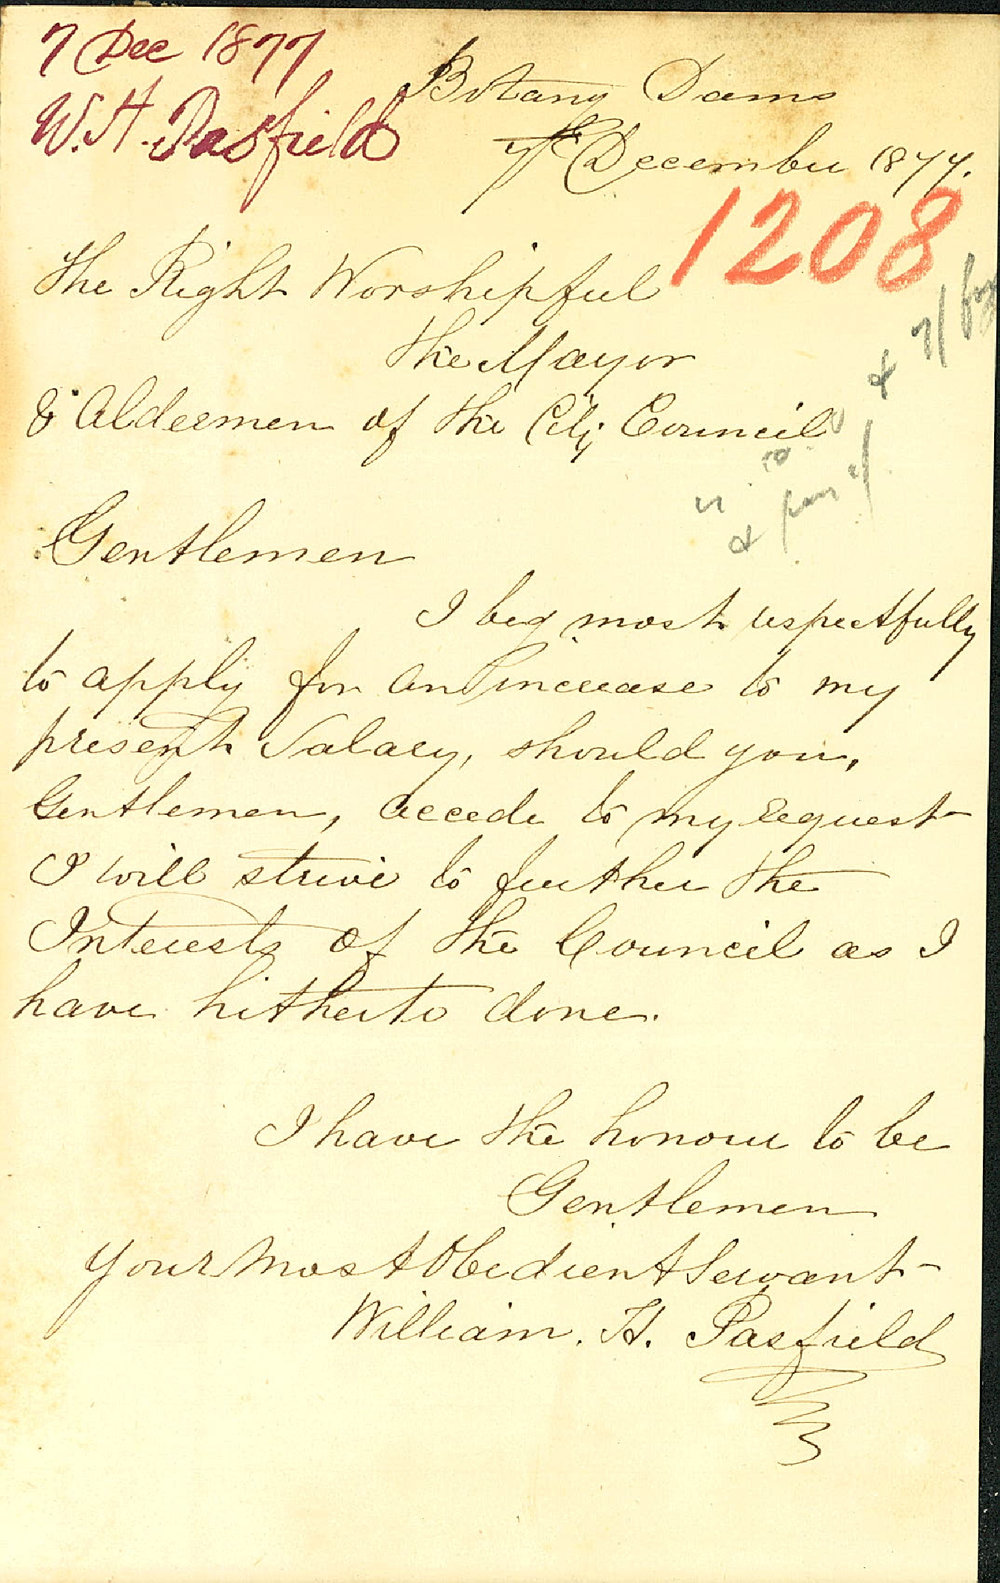 7 Dec 1877
W. H. Pasfield
Botany Dams
7th December 1877.
1208
The Right Worshipful
The Mayor
& Aldermen of the City Council
Gentlemen
I beg most respectfully
to apply for an increase to my
present Salary, should you,
Gentlemen, accede to my request
I will strive to further the
Interests of the Council as I
have hitherto done.
I have the honour to be
Gentlemen
Your Most Obedient Servant
William. H. Pasfield